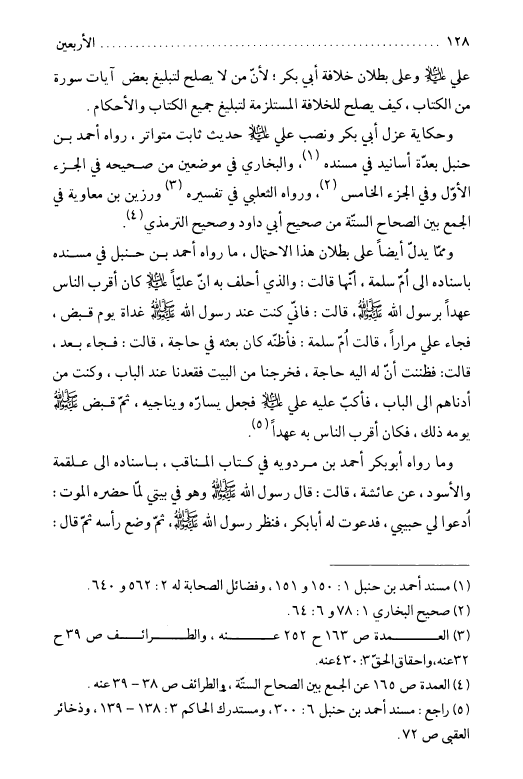 ١٢٨ ........................................................ الأربعين
علي ﵇ وعلى بطلان خلافة أبي بكر ؛ لأنّ من لا يصلح لتبليغ بعض آيات سورة
من الكتاب ، كيف يصلح للخلافة المستلزمة لتبليغ جميع الكتاب والأحكام .
وحكاية عزل أبي بكر ونصب علي ﵇ حديث ثابت متواتر ، رواه أحمد بـن
حنبل بعدّة أسانيد في مسنده (١)، والبخاري في موضعين من صـحيحه في الجـزء
الأوّل وفي الجزء الخامس (٢)، ورواه الثعلبي في تفسيره (٣) ورزين بن معاوية في
الجمع بين الصحاح الستّة من صحيح أبي داود وصحيح الترمذي (٤).
وممّا يدلّ أيضاً على بطلان هذا الاحتمال ، ما رواه أحمد بـن حـنبل في مسـنده
باسناده الى اُمّ سلمة ، أنّها قالت : والذي أحلف به انّ عليّاً ﵇ كان أقرب الناس
عهداً برسول الله ﷺ، قالت : فانّي كنت عند رسول الله ﷺ غداة يوم قـبض ،
فجاء علي مراراً ، قالت اُمّ سلمة : فأظنّه كان بعثه في حاجة ، قالت : فـجاء بـعد ،
قالت: فظننت أنّ له اليه حاجة ، فخرجنا من البيت فقعدنا عند الباب ، وكنت من
أدناهم الى الباب ، فأكبّ عليه علي ﵇ فجعل يسارّه ويناجيه ، ثمّ قـبض ﷺ
يومه ذلك ، فكان أقرب الناس به عهداً (٥).
وما رواه أبوبكر أحمد بن مـردويه في كـتاب المـناقب ، بـاسناده الى عـلقمة
والأسود ، عن عائشة ، قالت : قال رسول الله ﷺ وهو في بيتي لمّا حضره الموت :
اُدعوا لي حبيبي ، فدعوت له أبابكر ، فنظر رسول الله ﷺ، ثمّ وضع رأسه ثمّ قال :
(١) مسند أحمد بن حنبل ١ : ١٥٠ و ١٥١ ، وفضائل الصحابة له ٢ : ٥٦٢ و ٦٤٠ .
(٢) صحيح البخاري ١ : ٧٨ و ٦ : ٦٤.
(٣) العـــــمدة ص ١٦٣ ح ٢٥٢ عـــــنه ، والطـــــرائـــف ص ٣٩ ح
٣٢عنه،واحقاق الحقّ٣:٤٣٠عنه.
(٤) العمدة ص ١٦٥ عن الجمع بين الصحاح الستّة ، والطرائف ص ٣٨ – ٣٩ عنه .
(٥) راجع : مسند أحمد بن حنبل ٦ : ٣٠٠ ، ومستدرك الحاكم ٣ : ١٣٨ – ١٣٩ ، وذخائر
العقبى ص ٧٢ .